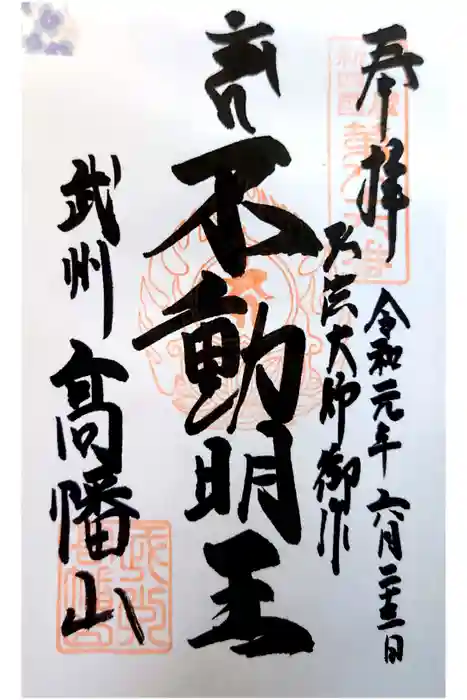 奉拝
令和元年六月二十三日
弘法大師御作
不動明王
武州 高幡山